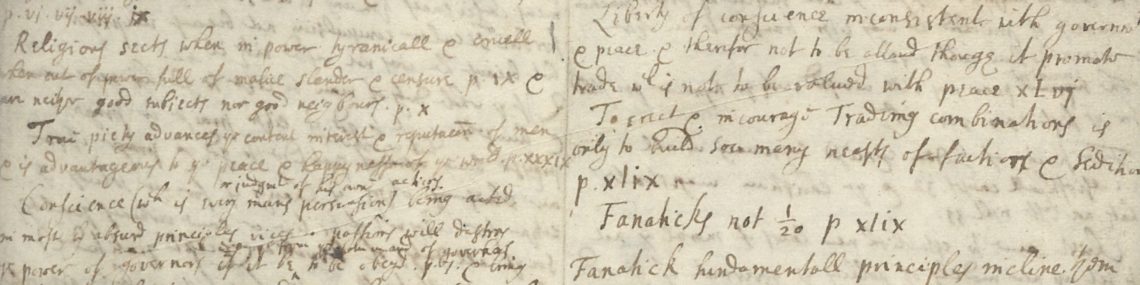 p. vi vij. viij. ix
Religious sects when in power tyranicall & cruell
when out of power full of malice slander & censure p. ix &
are neither good subjects nor good neighbours. p. x
True piety advances ye content interest & reputacon of men
& is advantageous to ye peace & happynesse of ye world p. xxxix
or judgmt of his own actions.
Conscience (wh is every mans persuasions being acted
most absurd principles vices or passions will destroy
power of governors if it be to be obeyd. p.
Liberty of conscience inconsistent with governmt
& peace & therefor not to be allowd though it promote
trade wh is not to be valued with peace xlvj
To erect & incourage Trading combinations is
only to build soe many neasts of factions & Sedition
p. xlix
Fanaticks not 1/20 p xlix
Fanatick fundamentall principles incline ym